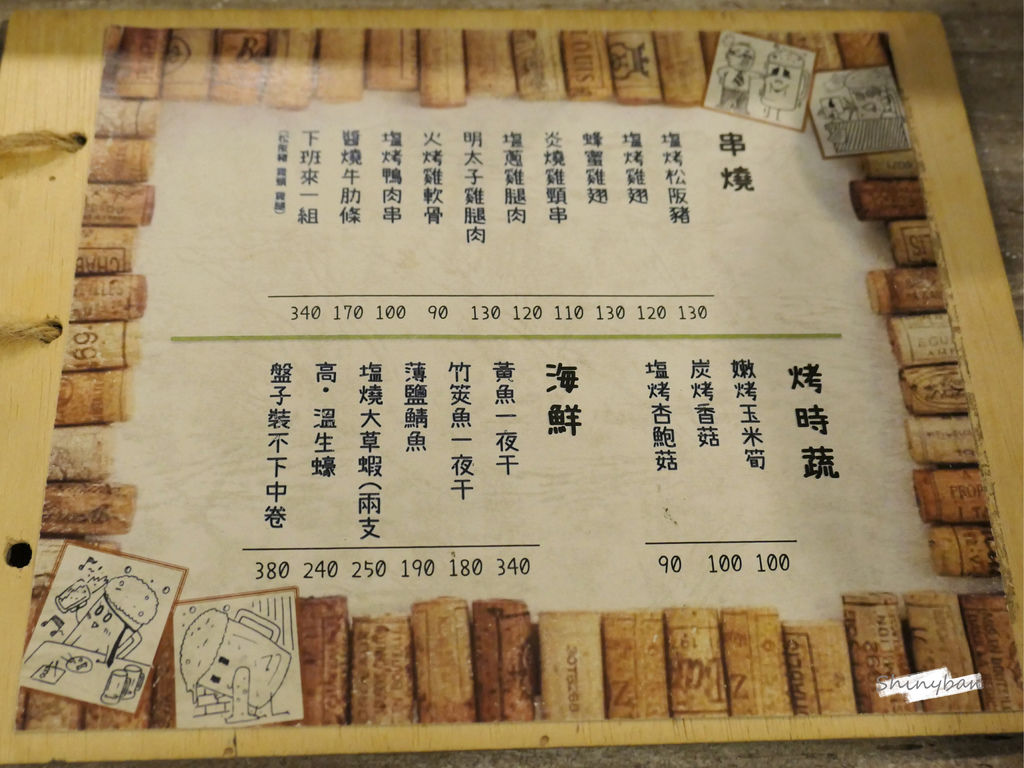 串燒
塩烤松阪豬
塩烤雞翅
蜂蜜雞翅
炎燒雞頸串
塩蔥雞腿肉
明太子雞腿肉
火烤雞軟骨
塩烤鴨肉串
醬燒牛肋條
下班來一組
340 170 100 90 130 120 110 130 120 130
烤時蔬
嫩烤玉米筍
炭烤香菇
塩烤杏鮑菇
90 100 100
海鮮
黃魚一夜干
竹筴魚一夜干
薄鹽鯖魚
塩燒大草蝦(兩支
高·溫生蠔
盤子裝不下中卷
380 240 250 190 180 340
shinyban